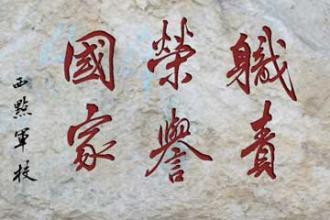 職責
榮譽
國家
西點軍校